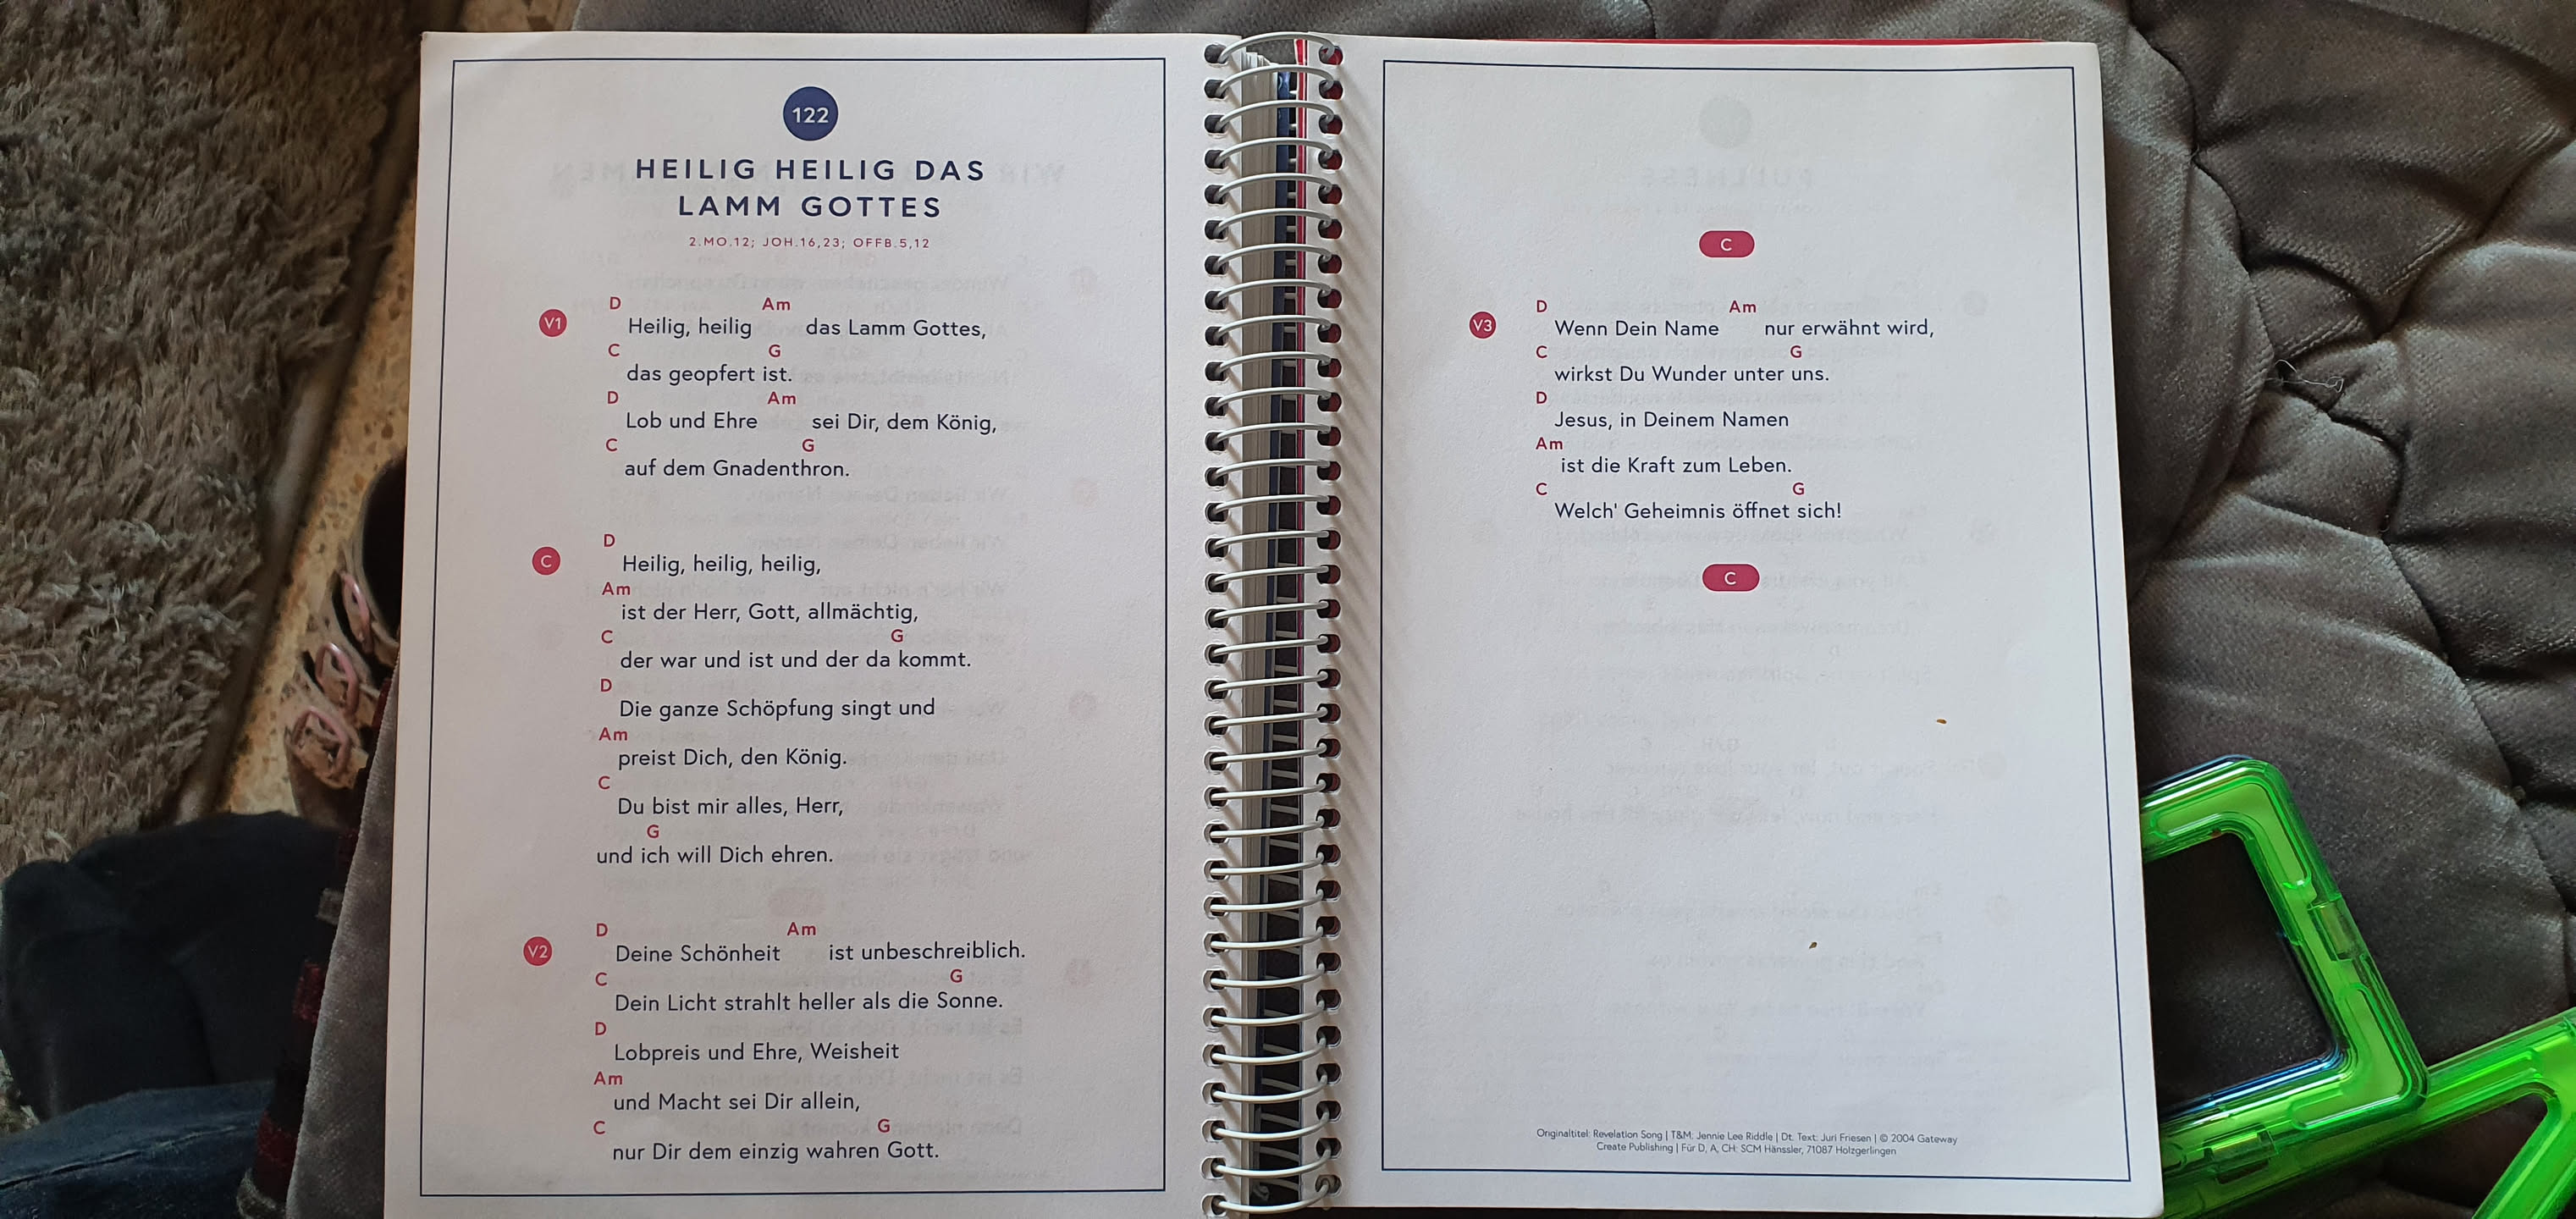 122
HEILIG HEILIG DAS
LAMM GOTTES
2.MO.12; JOH.16,23; OFFB.5,12
D Am
V1 Heilig, heilig das Lamm Gottes,
C G
das geopfert ist.
D Am
Lob und Ehre sei Dir, dem König,
C G
auf dem Gnadenthron.
D
C Heilig, heilig, heilig,
Am
ist der Herr, Gott, allmächtig,
C G
der war und ist und der da kommt.
D
Die ganze Schöpfung singt und
Am
preist Dich, den König.
C
Du bist mir alles, Herr,
G
und ich will Dich ehren.
D Am
V2 Deine Schönheit ist unbeschreiblich.
C G
Dein Licht strahlt heller als die Sonne.
D
Lobpreis und Ehre, Weisheit
Am
und Macht sei Dir allein,
C G
nur Dir dem einzig wahren Gott.
C
D Am
V3 Wenn Dein Name nur erwähnt wird,
C G
wirkst Du Wunder unter uns.
D
Jesus, in Deinem Namen
Am
ist die Kraft zum Leben.
C G
Welch' Geheimnis öffnet sich!
C
Originaltitel: Revelation Song | T&M: Jennie Lee Riddle | Dt. Text: Juri Friesen | © 2004 Gateway
Create Publishing | Für D, A, CH: SCM Hänssler, 71087 Holzgerlingen